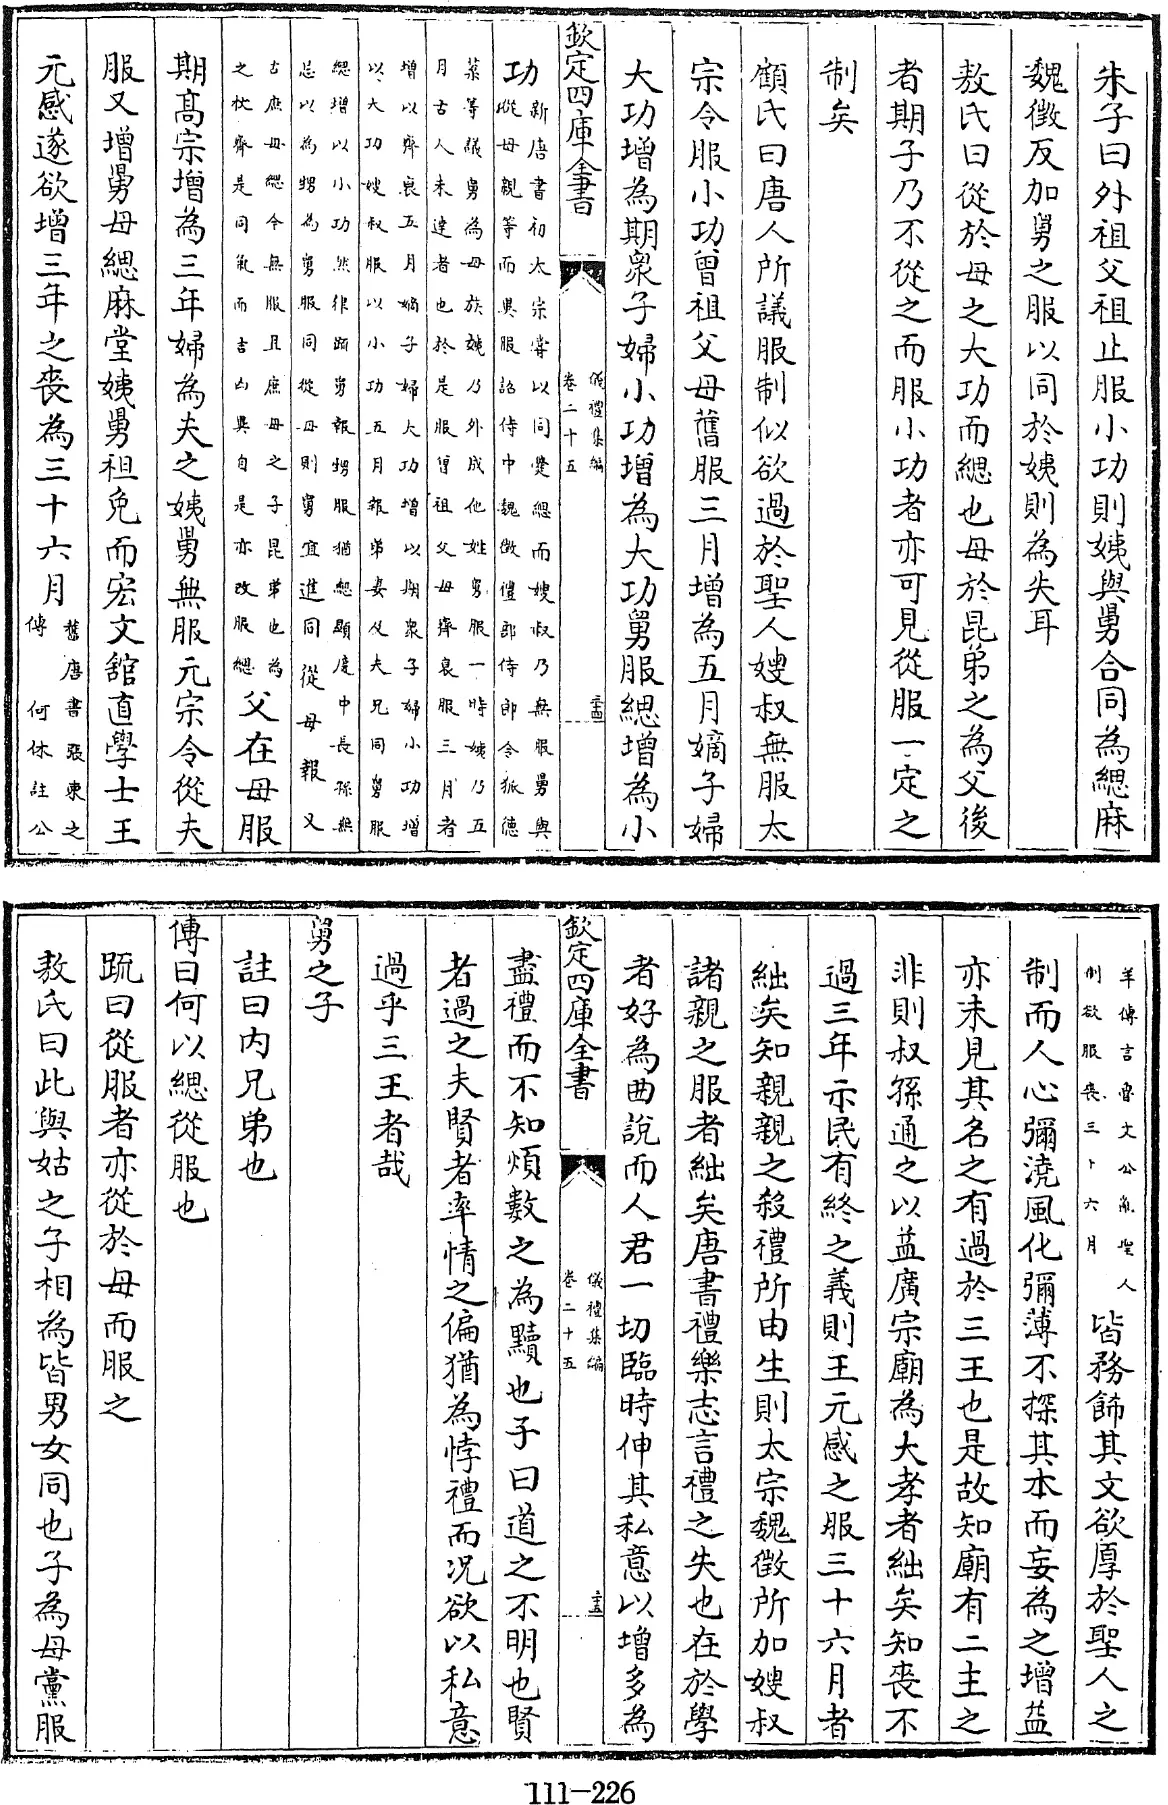 朱子曰外祖父祖止服小功則姨與舅合同為緦麻
魏徵反加舅之服以同於姨則為失耳
敖氏曰從於母之大功而緦也母於昆弟之為父後
者期子乃不從之而服小功者亦可見從服一定之
制矣
顧氏曰唐人所議服制似欲過於聖人嫂叔無服太
宗令服小功曾祖父母舊服三月增為五月嫡子婦
大功增為期衆子婦小功增為大功舅服緦增為小
欽定四庫全書
儀禮集編
卷二十五
功新唐書初太宗嘗以同爨緦而嫂叔乃無服舅與
從母親等而異服詔侍中魏徵禮部侍郎令狐德
棻等議舅為母族姨乃外成他姓舅服一時姨乃五
月古人未達者也於是服曾祖父母齊衰服三月者
增以齊衰五月嫡子婦大功增以期衆子婦小功增
以大功嫂叔服以小功五月報弟妻及夫兄同舅服
緦增以小功然律疏舅報甥服猶緦顯慶中長孫無
忌以為甥為舅服同從母則舅宜進同從母報又
古庶母緦今無服且庶母之子昆弟也為
之杖齊是同氣而吉凶異自是亦改服緦父在母服
期高宗增為三年婦為夫之姨舅無服元宗令從夫
服又增舅母緦麻堂姨舅袒免而宏文館直學士王
元感遂欲增三年之喪為三十六月舊唐書張柬之
傳 何休註公
羊傳言魯文公亂聖人
制欲服喪三十六月皆務飾其文欲厚於聖人之
制而人心彌澆風化彌薄不探其本而妄為之增益
亦未見其名之有過於三王也是故知廟有二主之
非則叔孫通之以益廣宗廟為大孝者絀矣知喪不
過三年示民有終之義則王元感之服三十六月者
絀矣知親親之殺禮所由生則太宗魏徵所加嫂叔
諸親之服者絀矣唐書禮樂志言禮之失也在於學
者好為曲說而人君一切臨時伸其私意以增多為
欽定四庫全書
儀禮集編
卷二十五
盡禮而不知煩數之為黷也子曰道之不明也賢
者過之夫賢者率情之偏猶為悖禮而況欲以私意
過乎三王者哉
舅之子
註曰內兄弟也
傳曰何以緦從服也
疏曰從服者亦從於母而服之
敖氏曰此與姑之子相為皆男女同也子為母黨服
111-226